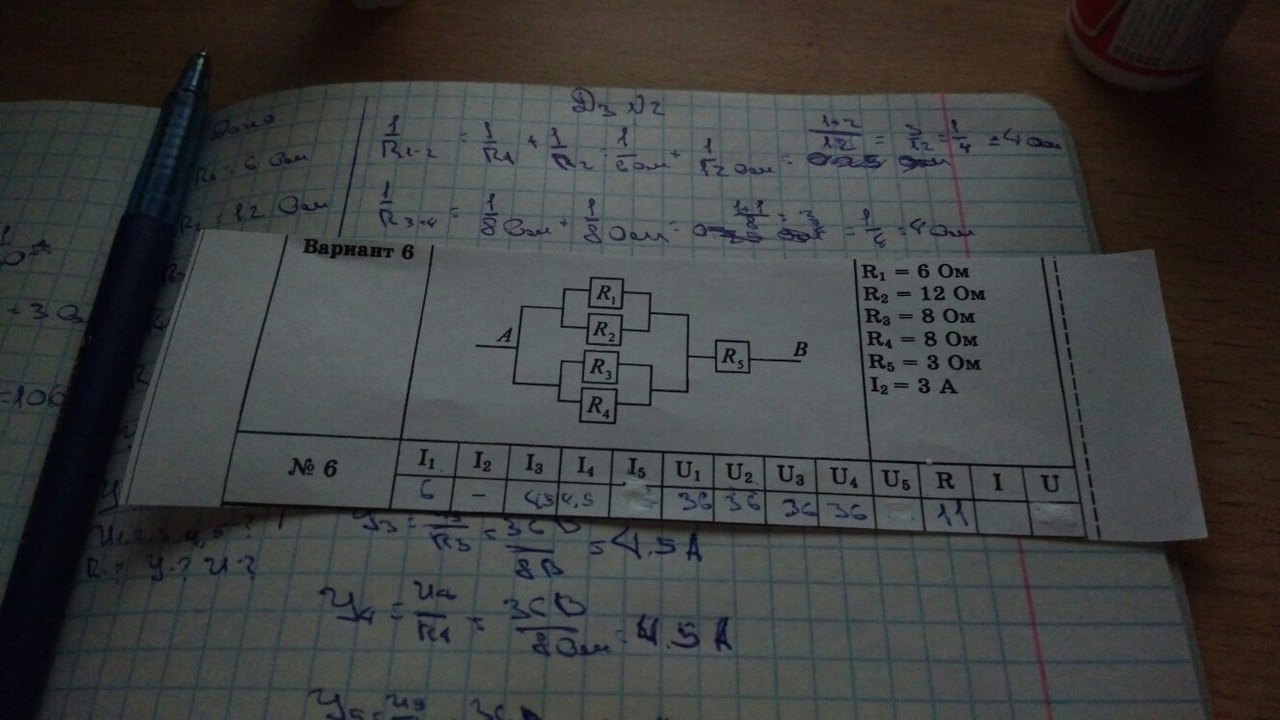 Дз №2
Дано:
R₁ = 6 Ом
R₂ = 12 Ом
1/R1-2 = 1/R1 + 1/R2 = 1/6 Ом + 1/12 Ом = 1+2/12 = 3/12 = 1/4 = 4 Ом
1/R3-4 = 1/8 Ом + 1/8 Ом = = 4 Ом
Вариант 6
A
R₁
R₂
R₃
R₄
R₅
B
R₁ = 6 Ом
R₂ = 12 Ом
R₃ = 8 Ом
R₄ = 8 Ом
R₅ = 3 Ом
I₂ = 3 А
№ 6 I₁ I₂ I₃ I₄ I₅ U₁ U₂ U₃ U₄ U₅ R I U
6 – 4,5 4,5 36 36 36 36 11
= 36 В / 8 В = 4.5 А
У₄ = U₄/R₄ = 36 В / 8 Ом = 4.5 А
R-? У-? U-?